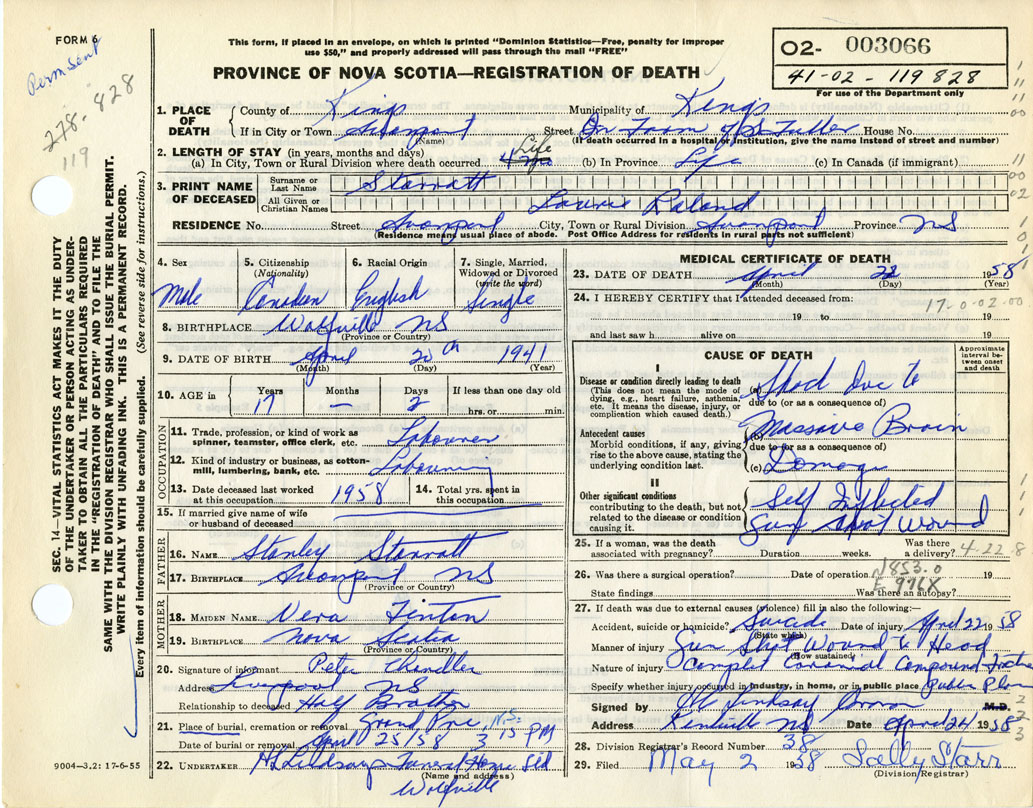 FORM 6
Perm Sent
278-
828
119
This form, if placed in an envelope, on which is printed "Dominion Statistics—Free, penalty for improper
use $50," and properly addressed will pass through the mail "FREE"
PROVINCE OF NOVA SCOTIA—REGISTRATION OF DEATH
02- 003066
41-02-119828
For use of the Department only
1. PLACE OF DEATH
County of Kings Municipality of Kings
If in City or Town Avonport Street On Farm of S. Fuller House No.
(Name) (If death occurred in a hospital or institution, give the name instead of street and number)
2. LENGTH OF STAY (in years, months and days)
(a) In City, Town or Rural Division where death occurred Life (b) In Province Life (c) In Canada (if immigrant)
3. PRINT NAME OF DECEASED
Surname or Last Name Starratt
All Given or Christian Names Laurie Roland
RESIDENCE No. Street Avonport City, Town or Rural Division Avonport Province NS
(Residence means usual place of abode. Post Office Address for residents in rural parts not sufficient)
4. Sex Male
5. Citizenship (Nationality) Canadian
6. Racial Origin English
7. Single, Married, Widowed or Divorced (write the word) Single
8. BIRTHPLACE Wolfville NS
(Province or Country)
9. DATE OF BIRTH April 20th 1941
(Month) (Day) (Year)
10. AGE in Years 17 Months — Days 2 If less than one day old hrs. or min.
OCCUPATION
11. Trade, profession, or kind of work as spinner, teamster, office clerk, etc. Labourer
12. Kind of industry or business, as cotton-mill, lumbering, bank, etc. Labouring
13. Date deceased last worked at this occupation 1958
14. Total yrs. spent in this occupation
15. If married give name of wife or husband of deceased
FATHER
16. NAME Stanley Starratt
17. BIRTHPLACE Avonport NS
(Province or Country)
MOTHER
18. MAIDEN NAME Vera Finton
19. BIRTHPLACE Nova Scotia
(Province or Country)
20. Signature of informant Peter Chandler
Address Liverpool NS
Relationship to deceased Half Brother
21. Place of burial, cremation or removal Grand Pre N.S.
Date of burial or removal April 25/58 3 15 PM
22. UNDERTAKER H Lindsays Funeral Home Ltd
(Name and address)
Wolfville
9004—3.2: 17-6-55
MEDICAL CERTIFICATE OF DEATH
23. DATE OF DEATH April 22 1958
(Month) (Day) (Year)
24. I HEREBY CERTIFY that I attended deceased from:
17-0-02-00
19 to 19
and last saw h alive on 19
CAUSE OF DEATH
Approximate interval between onset and death
I
Disease or condition directly leading to death
(This does not mean the mode of dying, e.g., heart failure, asthenia, etc. It means the disease, injury, or complication which caused death.)
(a) Shock Due to
due to (or as a consequence of)
Antecedent causes
Morbid conditions, if any, giving rise to the above cause, stating the underlying condition last.
(b) Massive Brain
due to (or as a consequence of)
(c) Damage
II
Other significant conditions
contributing to the death, but not related to the disease or condition causing it.
Self Inflected
Gun Shot Wound
25. If a woman, was the death associated with pregnancy? Duration weeks. Was there a delivery?
4-22-8
26. Was there a surgical operation? Date of operation 19
N853.0
E 976X
State findings Was there an autopsy?
27. If death was due to external causes (violence) fill in also the following:—
Accident, suicide or homicide? Suicide Date of injury April 22 1958
(State which)
Manner of injury Gun Shot Wound to Head
(How sustained)
Nature of injury Complet Cranial Compound
Specify whether injury occurred in industry, in home, or in public place Public
Signed by Lindsay M.D.
Address Kentville NS Date April 24/ 1958
28. Division Registrar's Record Number 38
29. Filed May 2 1958 Sally Starr
(Division Registrar)
SEC. 14—VITAL STATISTICS ACT MAKES IT THE DUTY
OF THE UNDERTAKER OR PERSON ACTING AS UNDER-
TAKER TO OBTAIN ALL THE PARTICULARS REQUIRED
IN THE "REGISTRATION OF DEATH" AND TO FILE THE
SAME WITH THE DIVISION REGISTRAR WHO SHALL ISSUE THE BURIAL PERMIT.
WRITE PLAINLY WITH UNFADING INK. THIS IS A PERMANENT RECORD.
Every item of information should be carefully supplied. (See reverse side for instructions.)